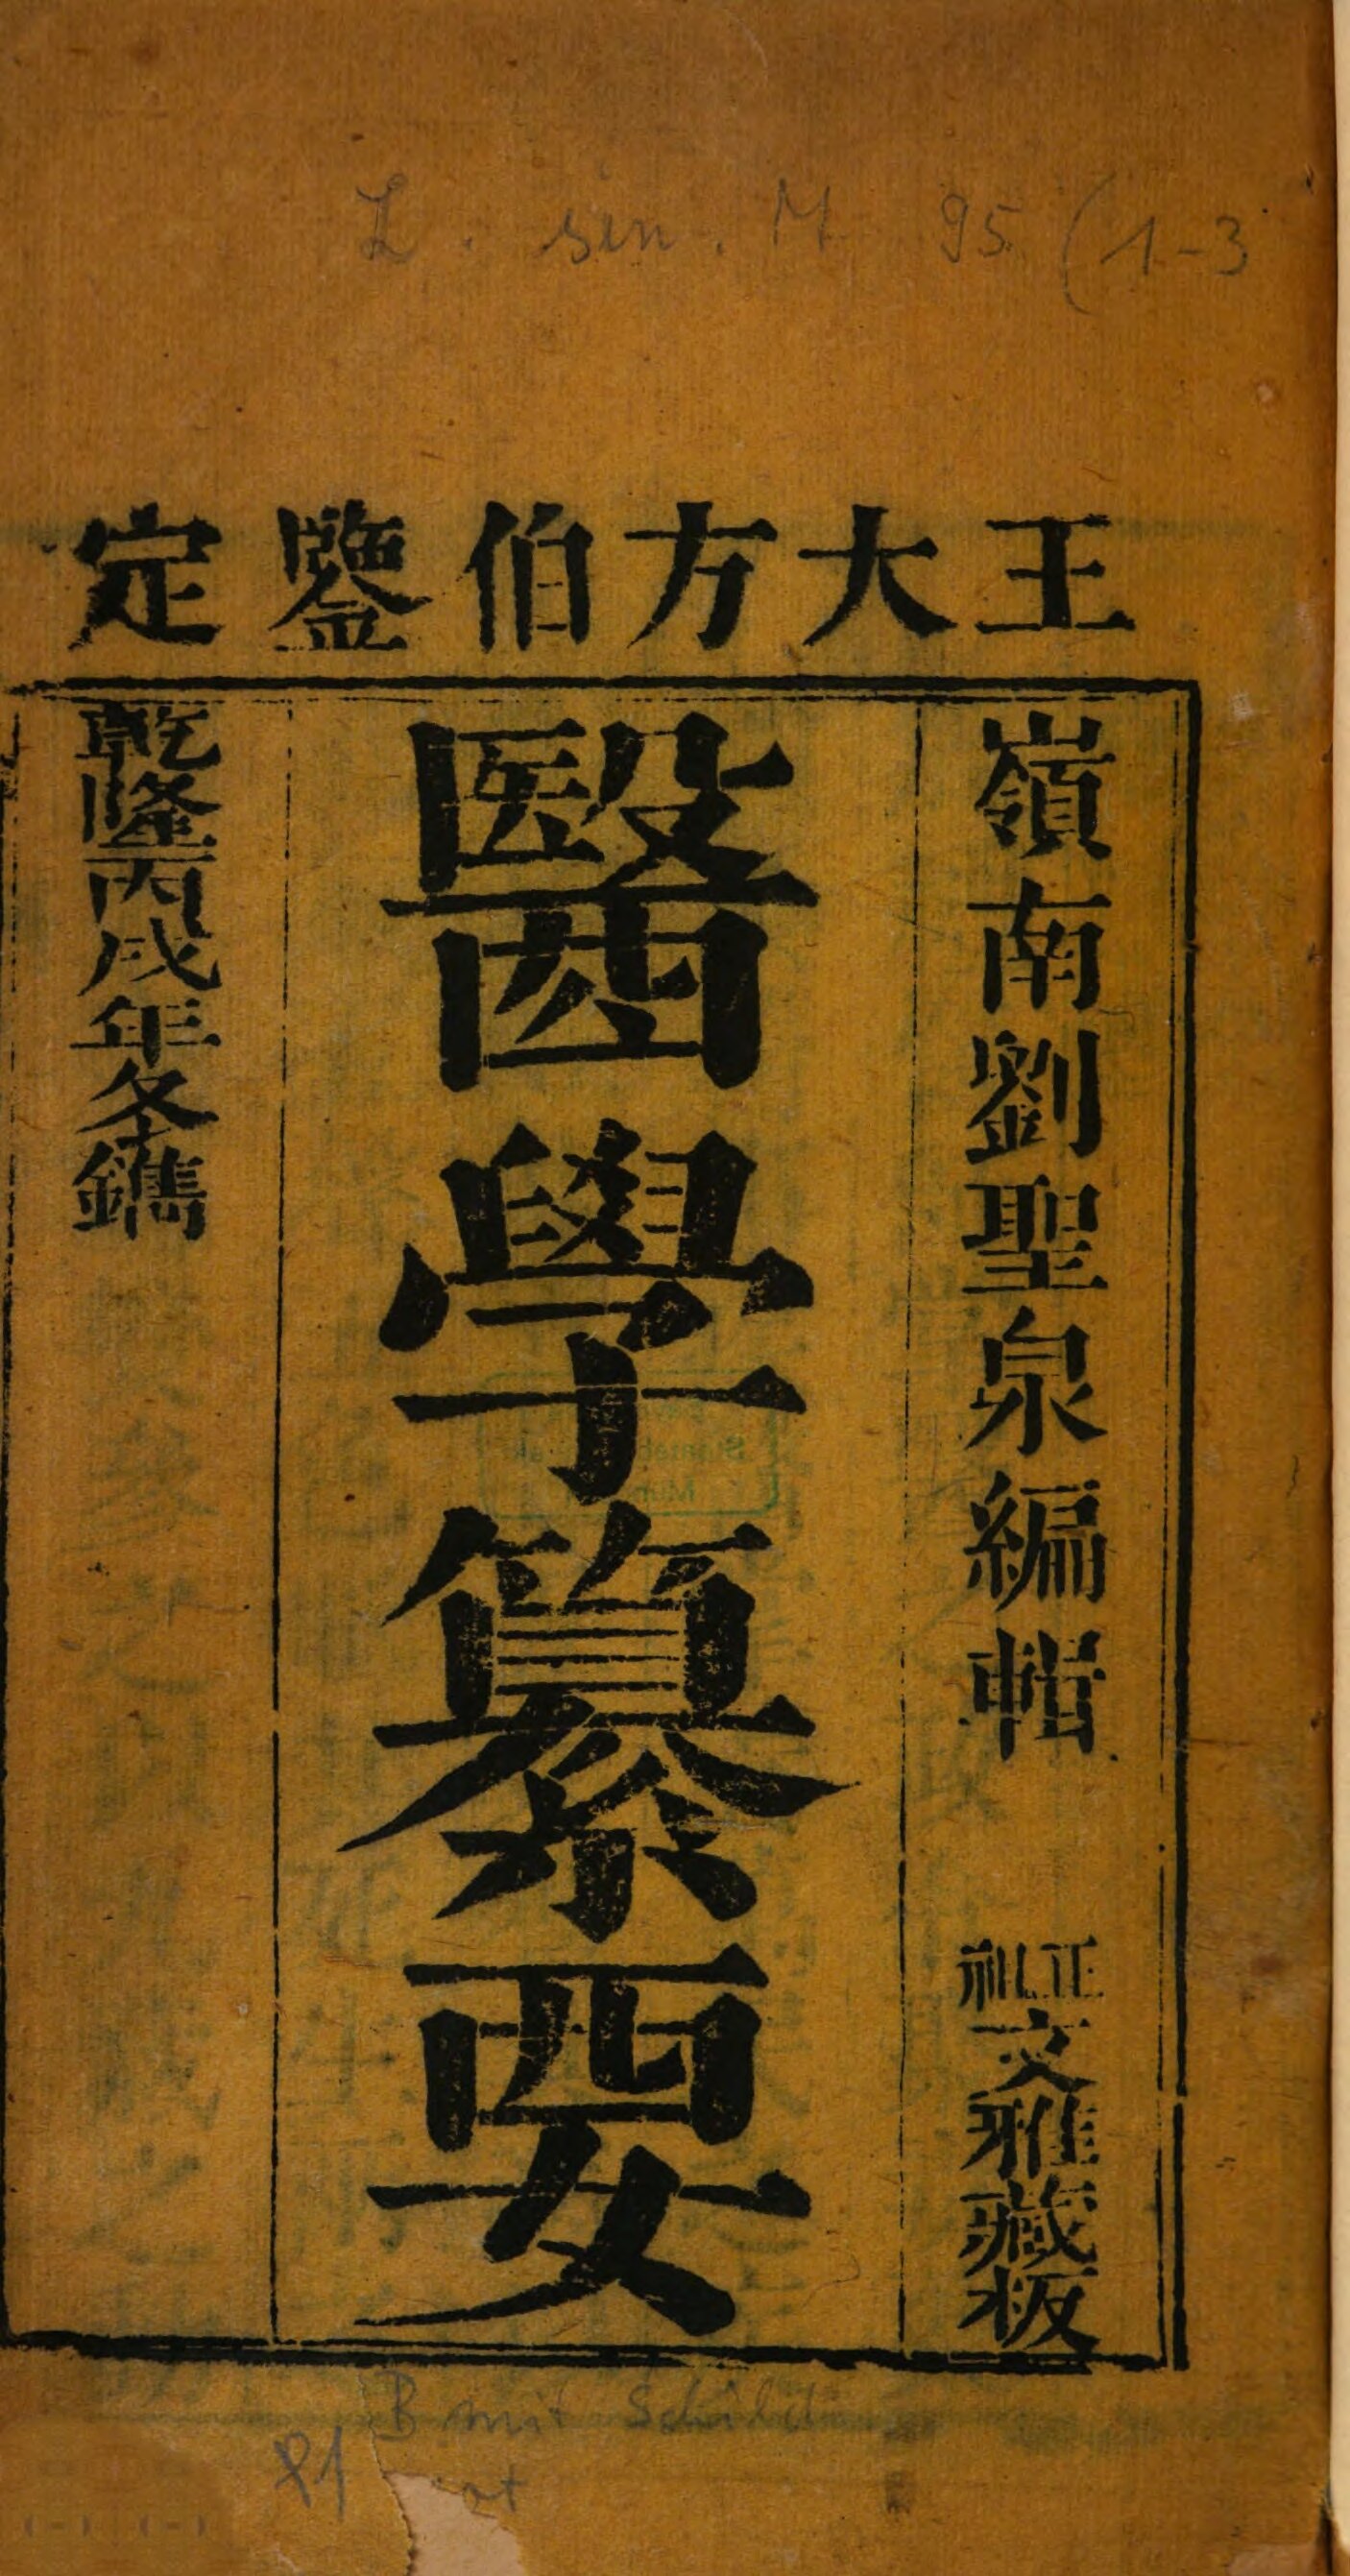 L. sin. M 95 (1-3
王大方伯鑒定
嶺南劉聖泉編輯
正祖
文雅藏板
醫學纂要
乾隆丙戌年冬鐫
B mit Schild